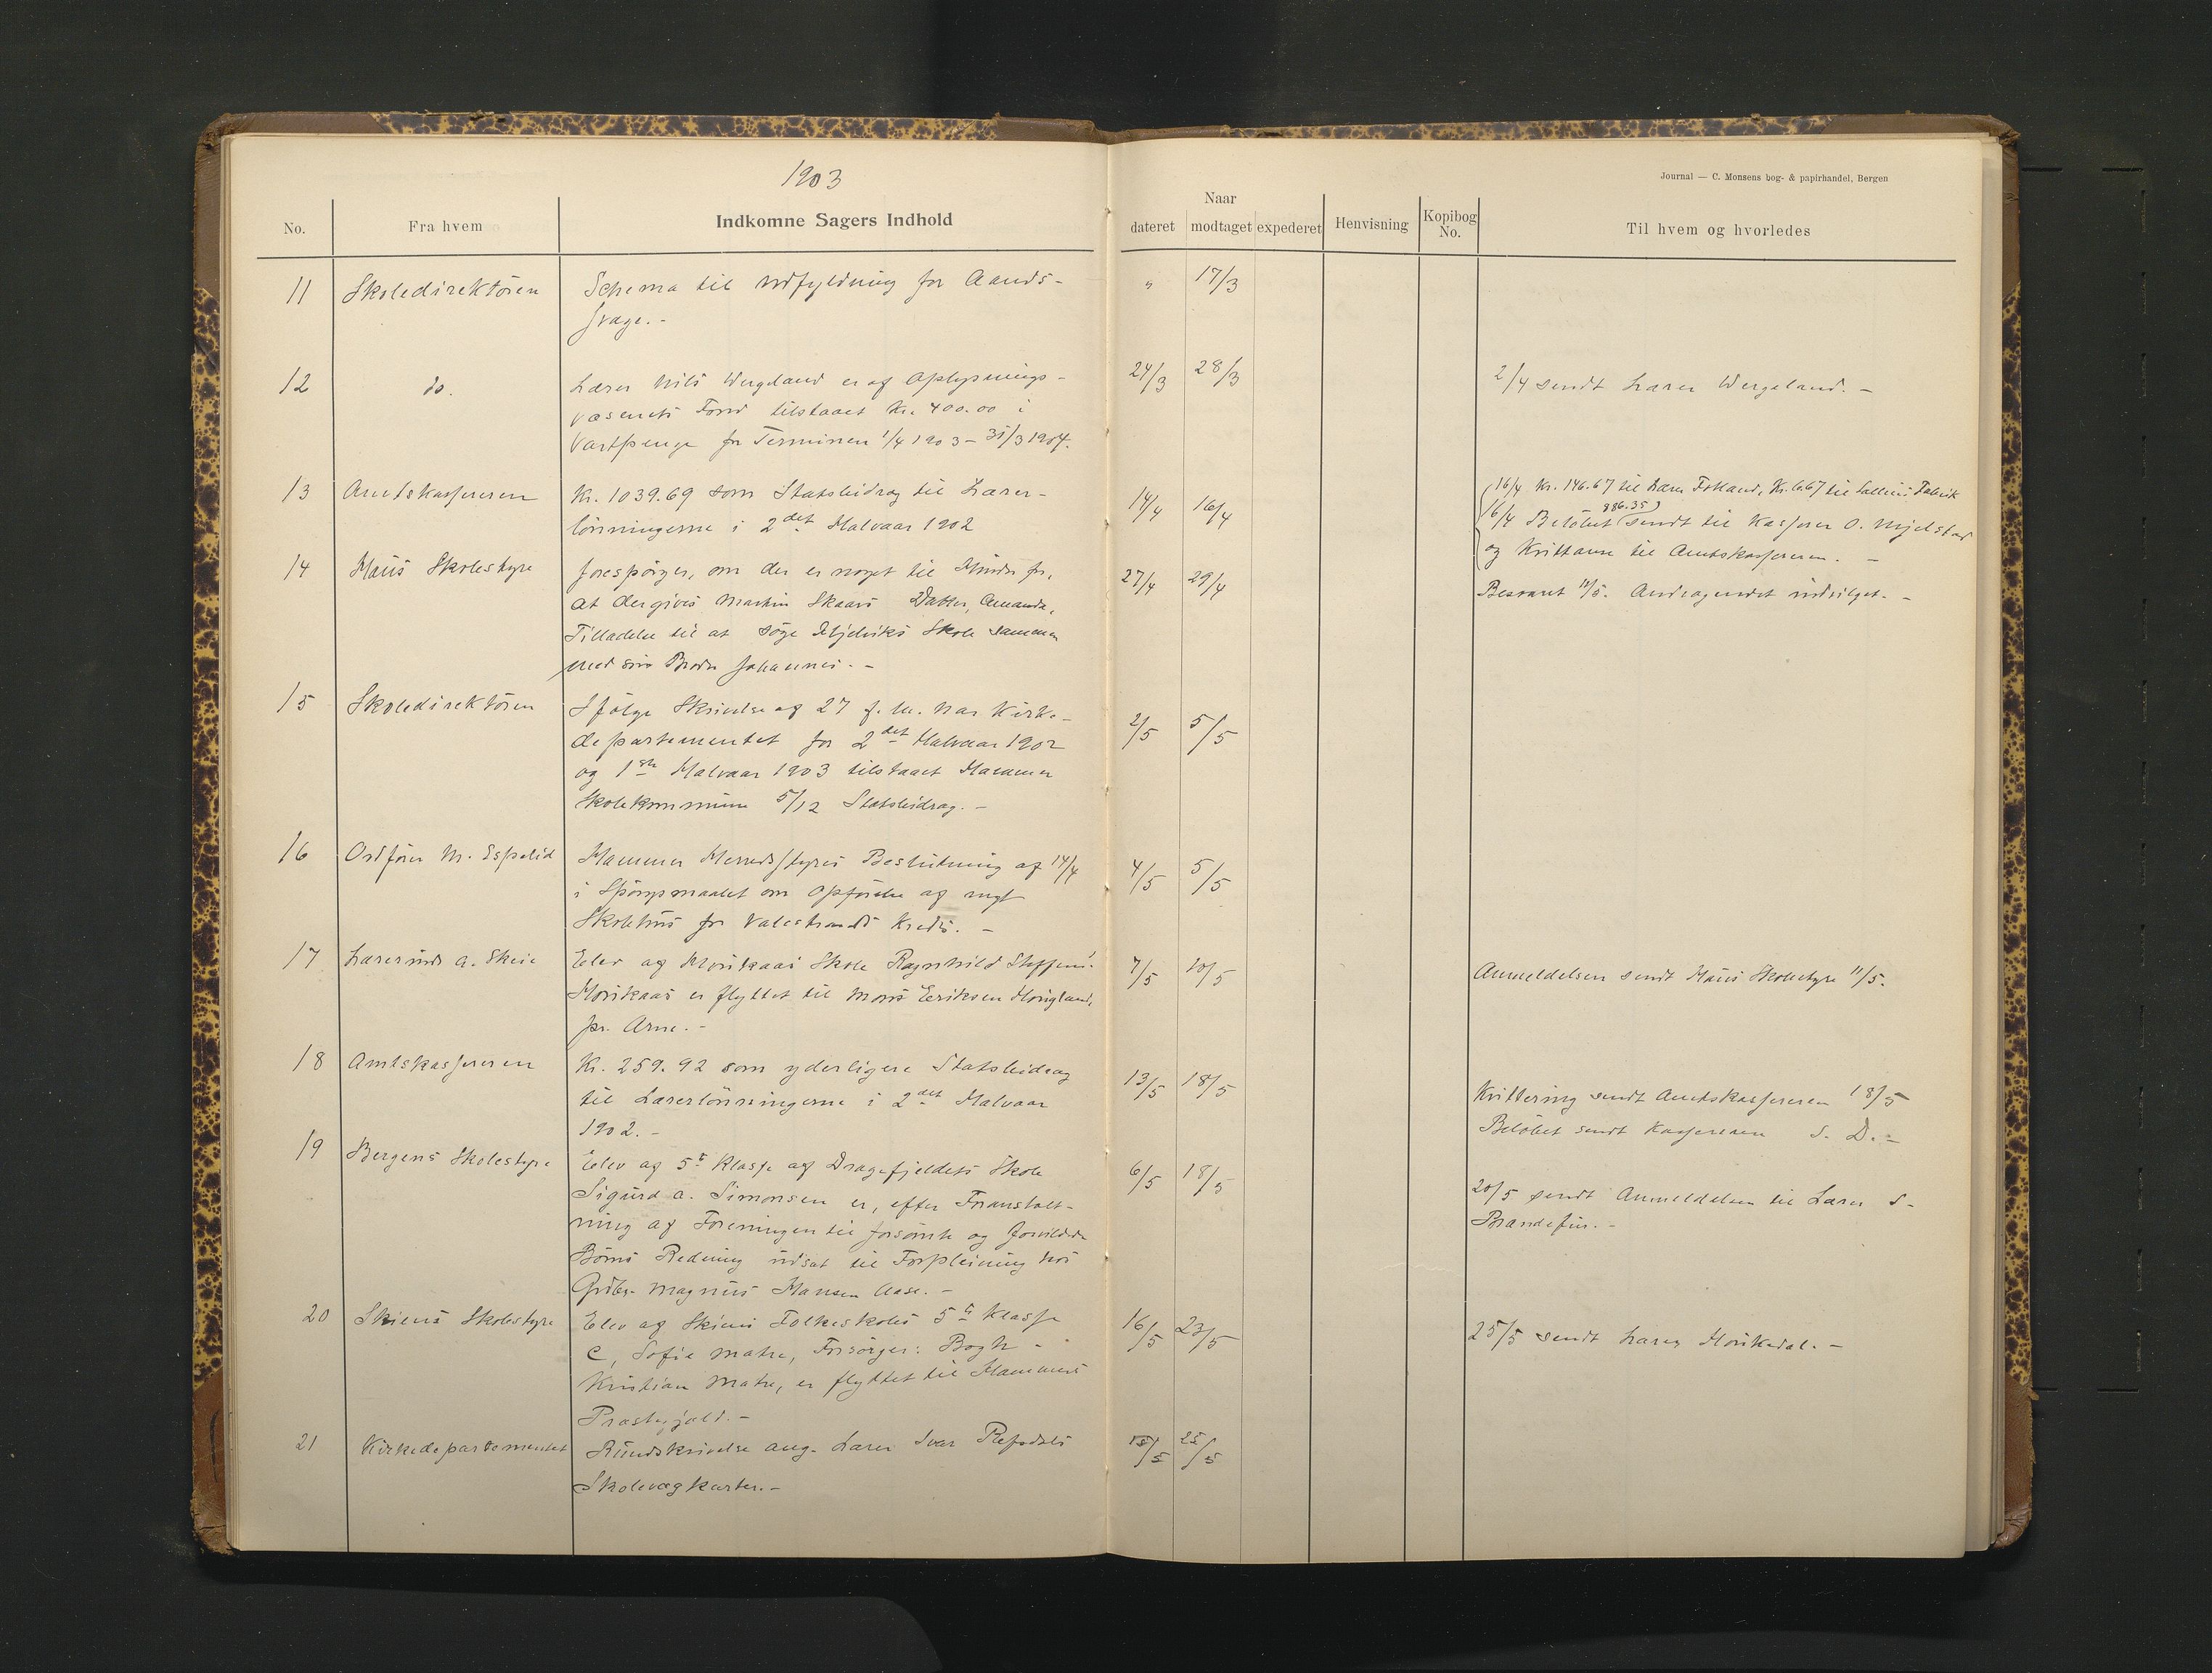 1903
Journal — C. Monsens bog- & papirhandel, Bergen
No. Fra hvem Indkomne Sagers Indhold Naar dateret modtaget expederet Henvisning Kopibog No. Til hvem og hvorledes
11 Skoledirektören Schema til Udfyldning for Aands- " 17/3
svage. -
12 do. Lærer Nils Wergeland er af Oplysnings- 24/3 28/3 2/4 sendt Lærer Wergeland. -
væsenets Fond tilstaaet Kr. 400.00 i
Vartpenge for Terminen 1/4 1903 - 31/3 1904.
13 Amtskasserer​en Kr. 1039.69 som Statsbidrag til Lærer- 14/4 16/4 16/4 Kr. 146.67 til Lærer Fotland, Kr. 6.67 til Fabrik
lönningerne i 2det Halvaar 1902 16/4 Belöbet (886.35) sendt til Kasserer O. Mjelstad
og Kvittance til Amtskassereren. -
14 Haus Skolestyre forespörger, om der er noget til Hinder for, 27/4 29/4 Besvaret 11/5. Andragendet indvilget. -
at der gives Martin Skaars Datter, Amanda,
Tilladelse til at söge Mjelviks Skole sammen
med sin Broder Johannes. -
15 Skoledirektören Ifölge Skrivelse af 27 f. M. har Kirke- 2/5 5/5
departementet for 2det Halvaar 1902
og 1ste Halvaar 1903 tilstaaet Hammer
Skolekommune 5/12 Statsbidrag. -
16 Ordförer M. Espelid Hammer Herredsstyres Beslutning af 14/4 4/5 5/5
i Spörgsmaalet om Opförelse af nyt
Skolehus for Valestrands Kreds. -
17 Lærerinde A. Skeie Elev af Horikaas Skole Ragnhild Steffens. 7/5 10/5 Anmeldelsen sendt Haus Skolestyre 11/5.
Horikaas er flyttet til Mons Eeriksen Hougland,
pr. Arne. -
18 Amtskassereren Kr. 259.92 som yderligere Statsbidrag 13/5 18/5 Kvittering sendt Amtskassereren 18/5
til Lærerlönningerne i 2det Halvaar Belöbet sendt Kassereren S. D. -
1902. -
19 Bergens Skolestyre Elev af 5te Klasse af Dragefjeldets Skole 6/5 18/5 20/5 sendt Anmeldelsen til Lærer S.
Sigurd A. Simonsen er, efter Foranstalt- Brandasen. -
ning af Foreningen til forsömte og forvildede
Börns Redning udsat til Forpleining hos
Grdbr. Magnus Hansen Aase. -
20 Skiens Skolestyre Elev af Skiens Folkeskoles 5te Klasse 16/5 23/5 25/5 sendt Lærer Horikedal. -
C, Sofie Matre, Forsörger: Bogh-
Kristian Matre, er flyttet til Hammers
Præstegjæld. -
21 Kirkedepartementet Rundskrivelse ang. Lærer Ivar Refsdals 15/5 25/5
Skolevægkarter. -